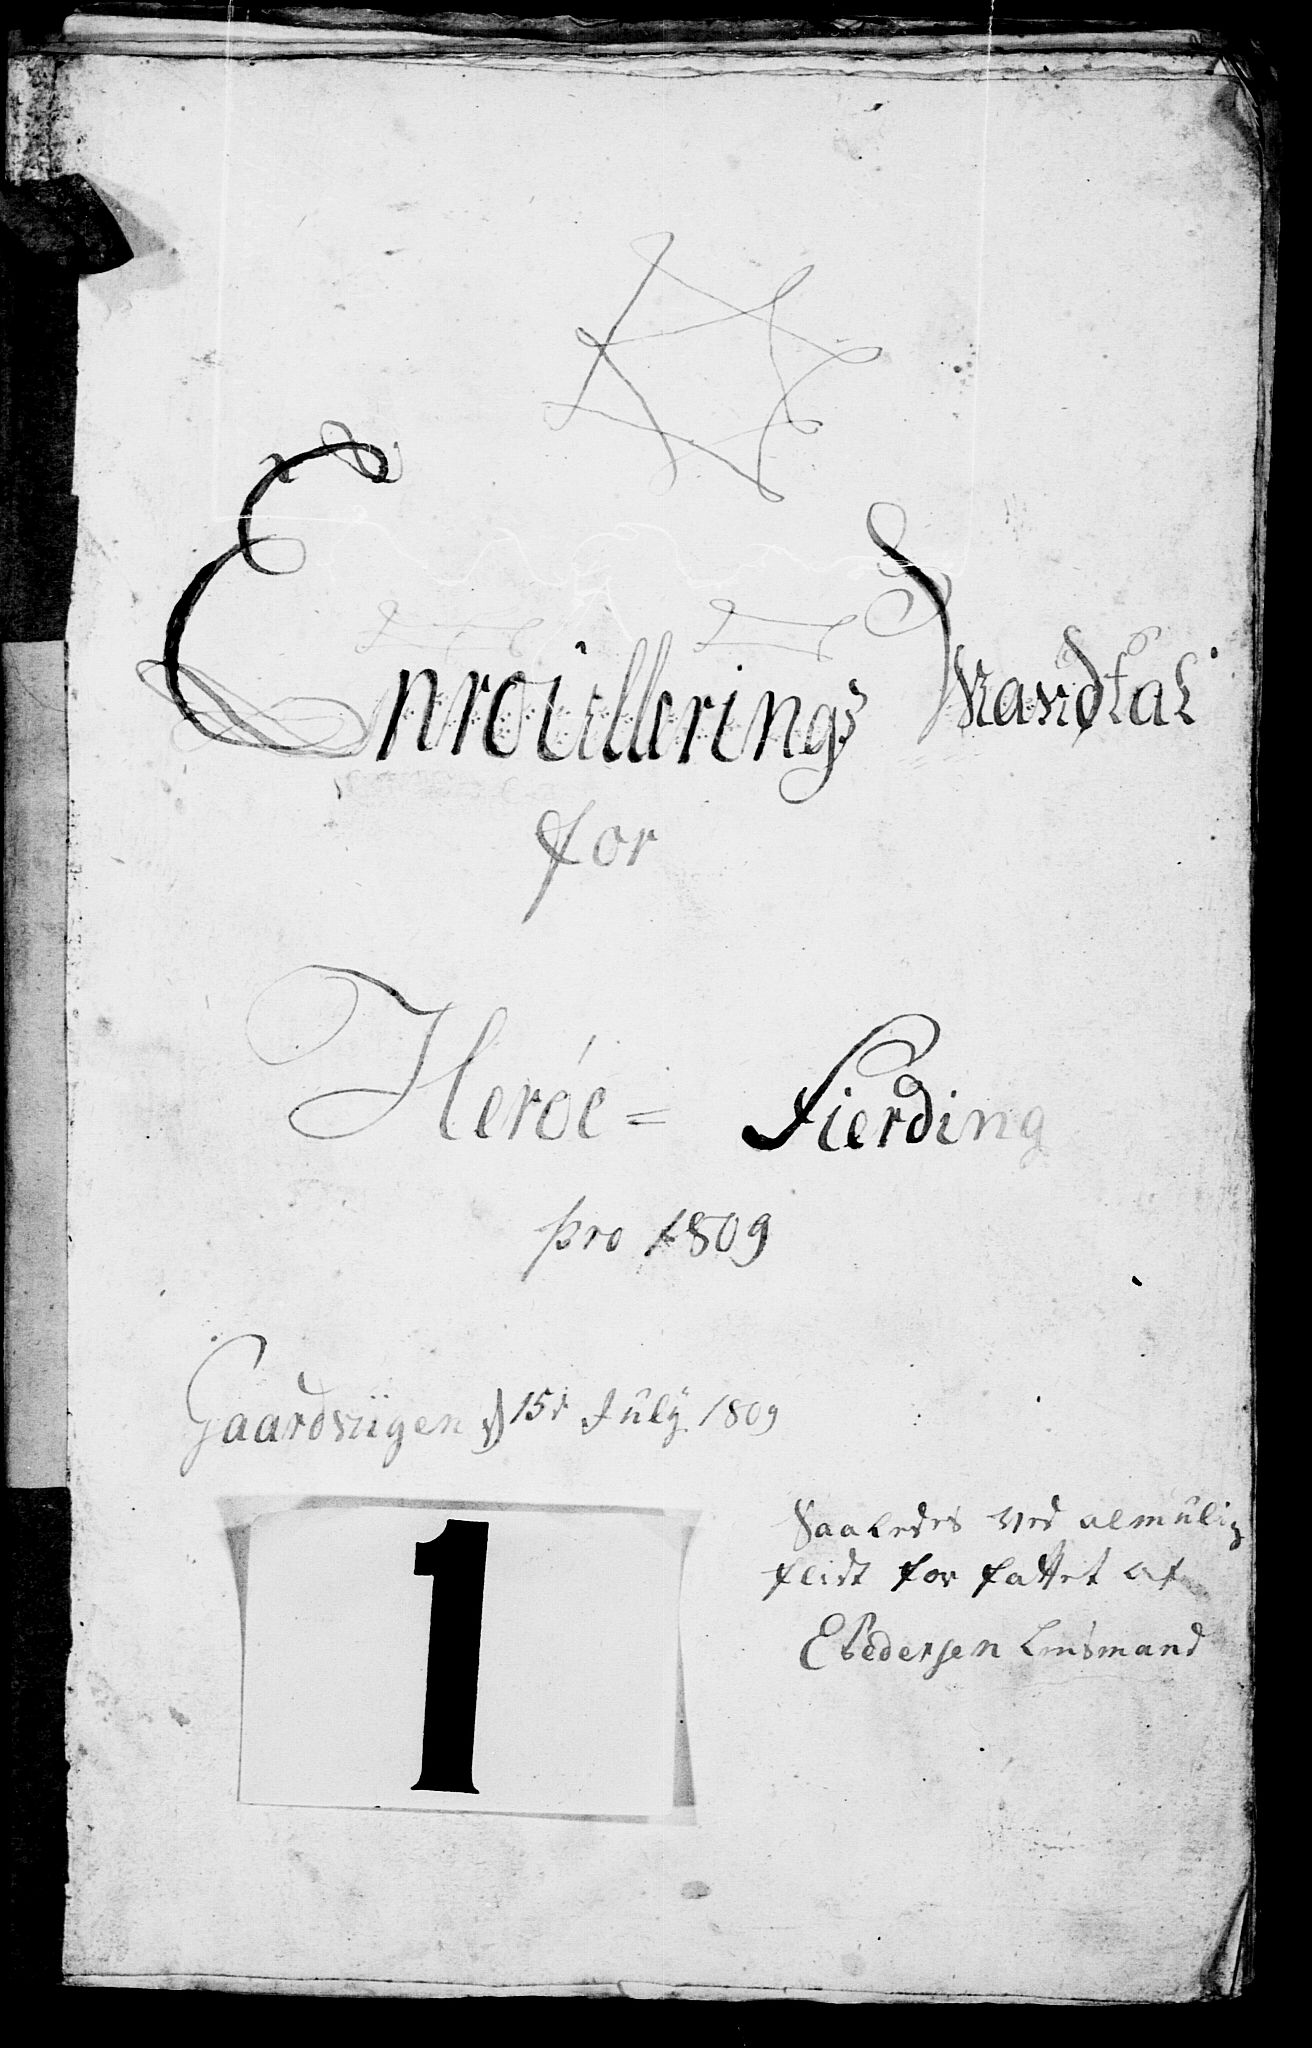 Enroullerings Mandtal
for
Herøe = Fierding
pro 1809
Gaardviigen d 15d July 1809
Saaledes ved almulig
flidt for fattet af
EPedersen Linsmand
1